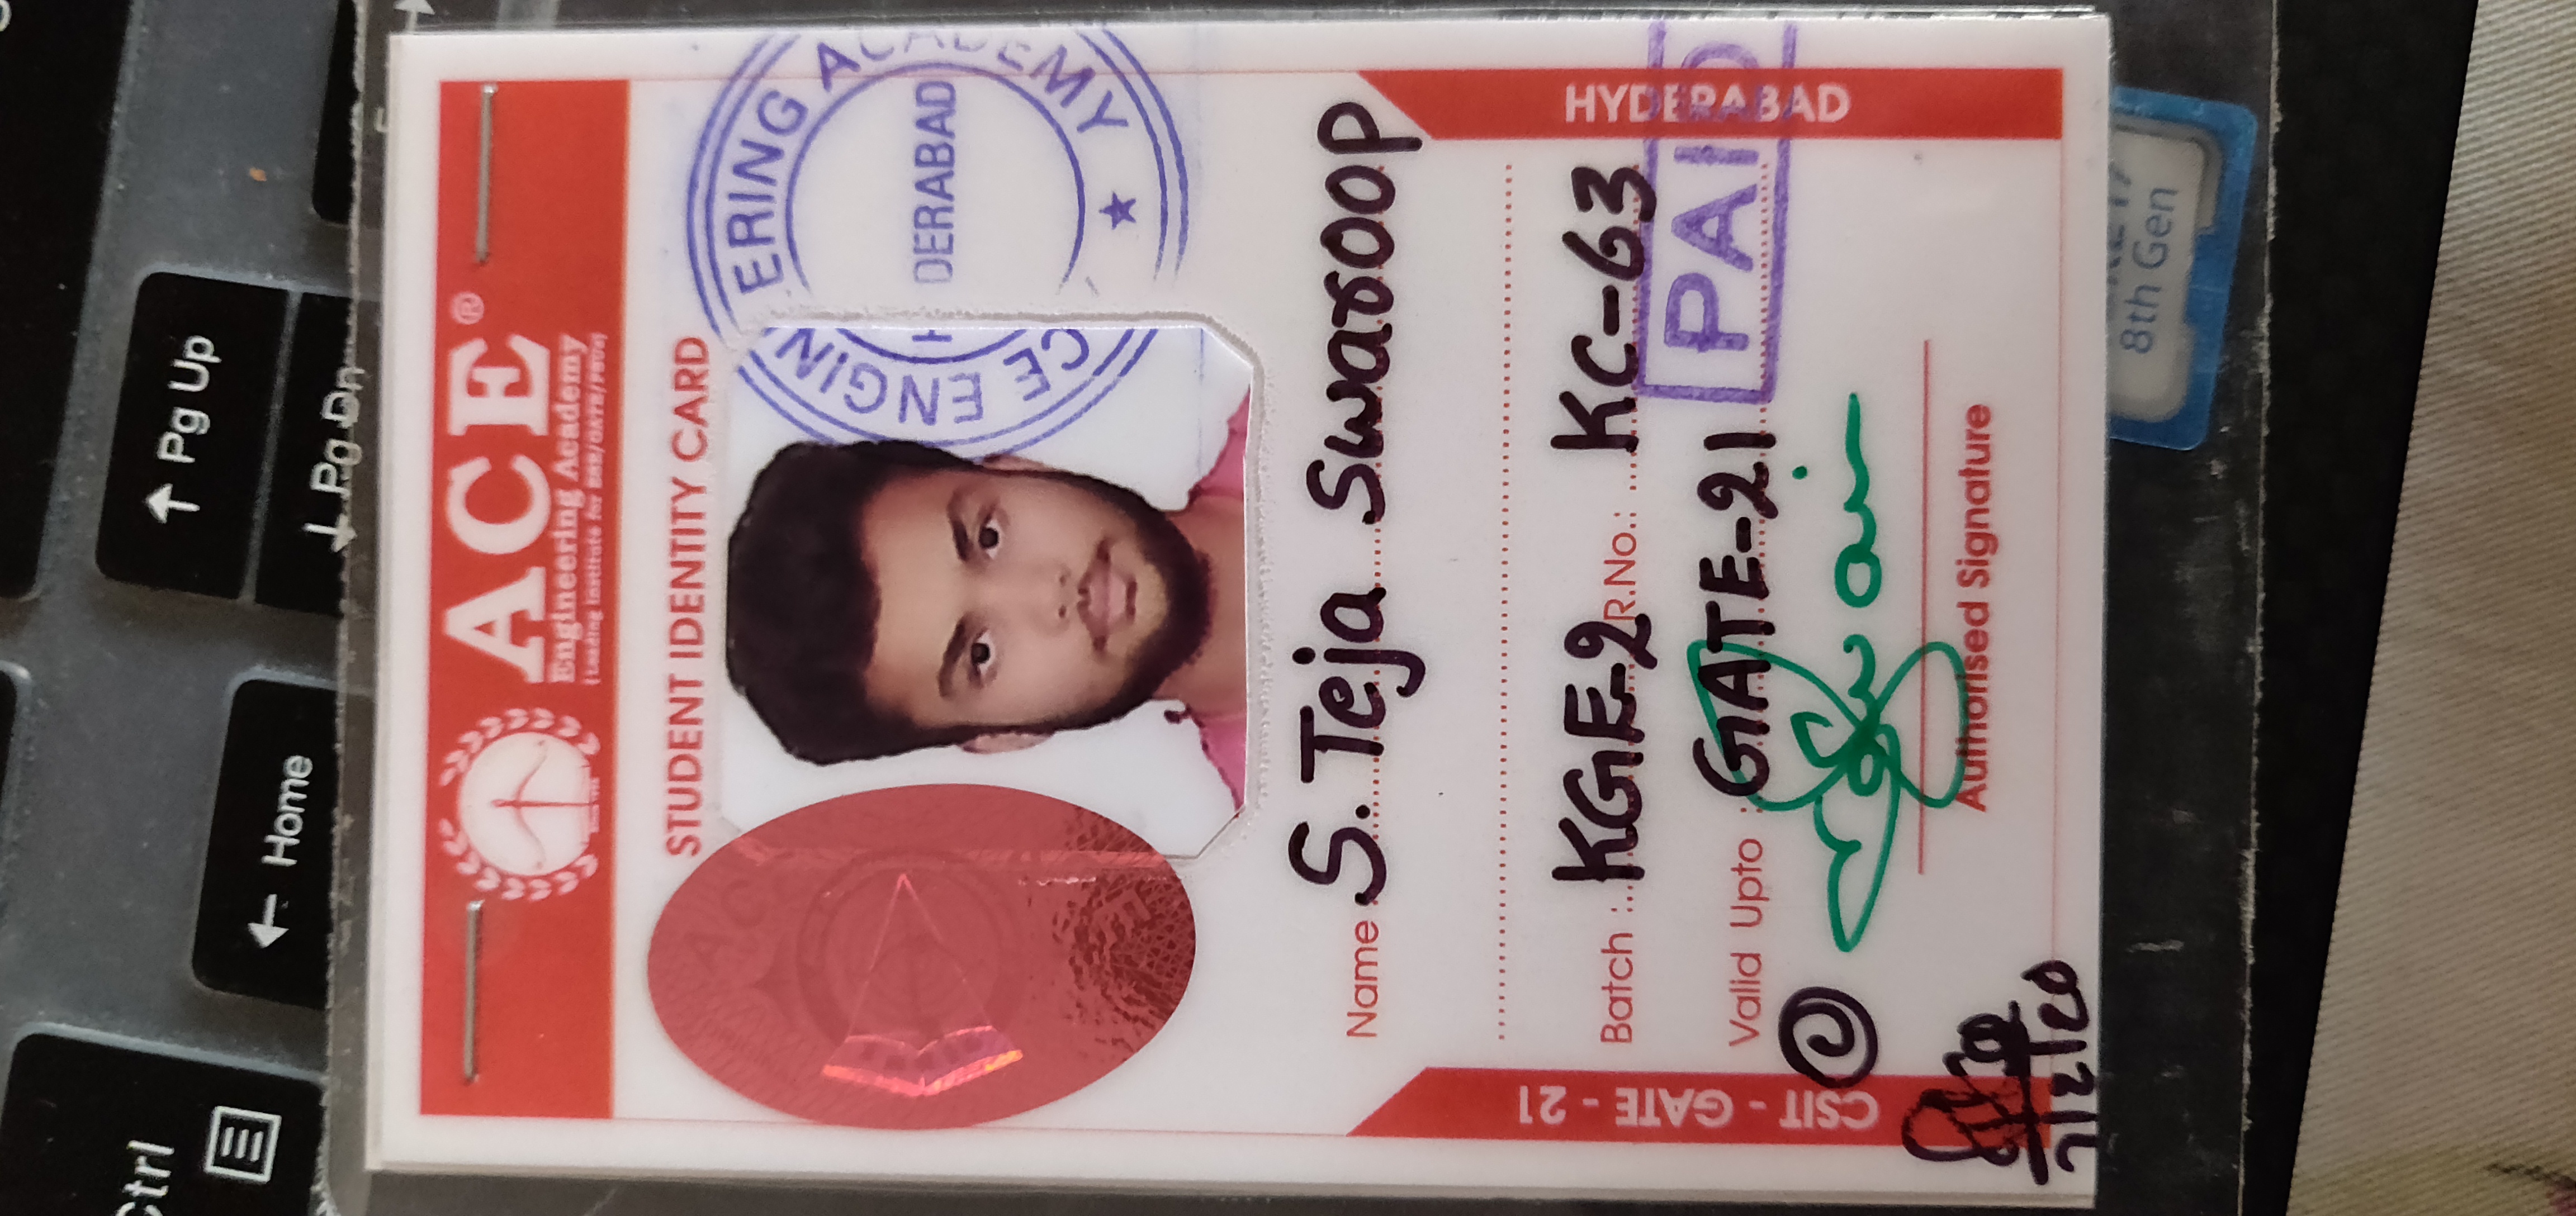 Ctrl
↑ Pg Up
← Home
↓ Pg Dn
ACE®
Engineering Academy
(Leading Institute for ESE/GATE/PSUs)
STUDENT IDENTITY CARD
CE ENGIN ERING ACADEMY
H DERABAD
Name S. Teja Swaroop
Batch : KGE-2 R.No.: KC-63
Valid Upto : GATE-21
PAID
CSIT - GATE - 21
HYDERABAD
Authorised Signature
7/2/20
8th Gen